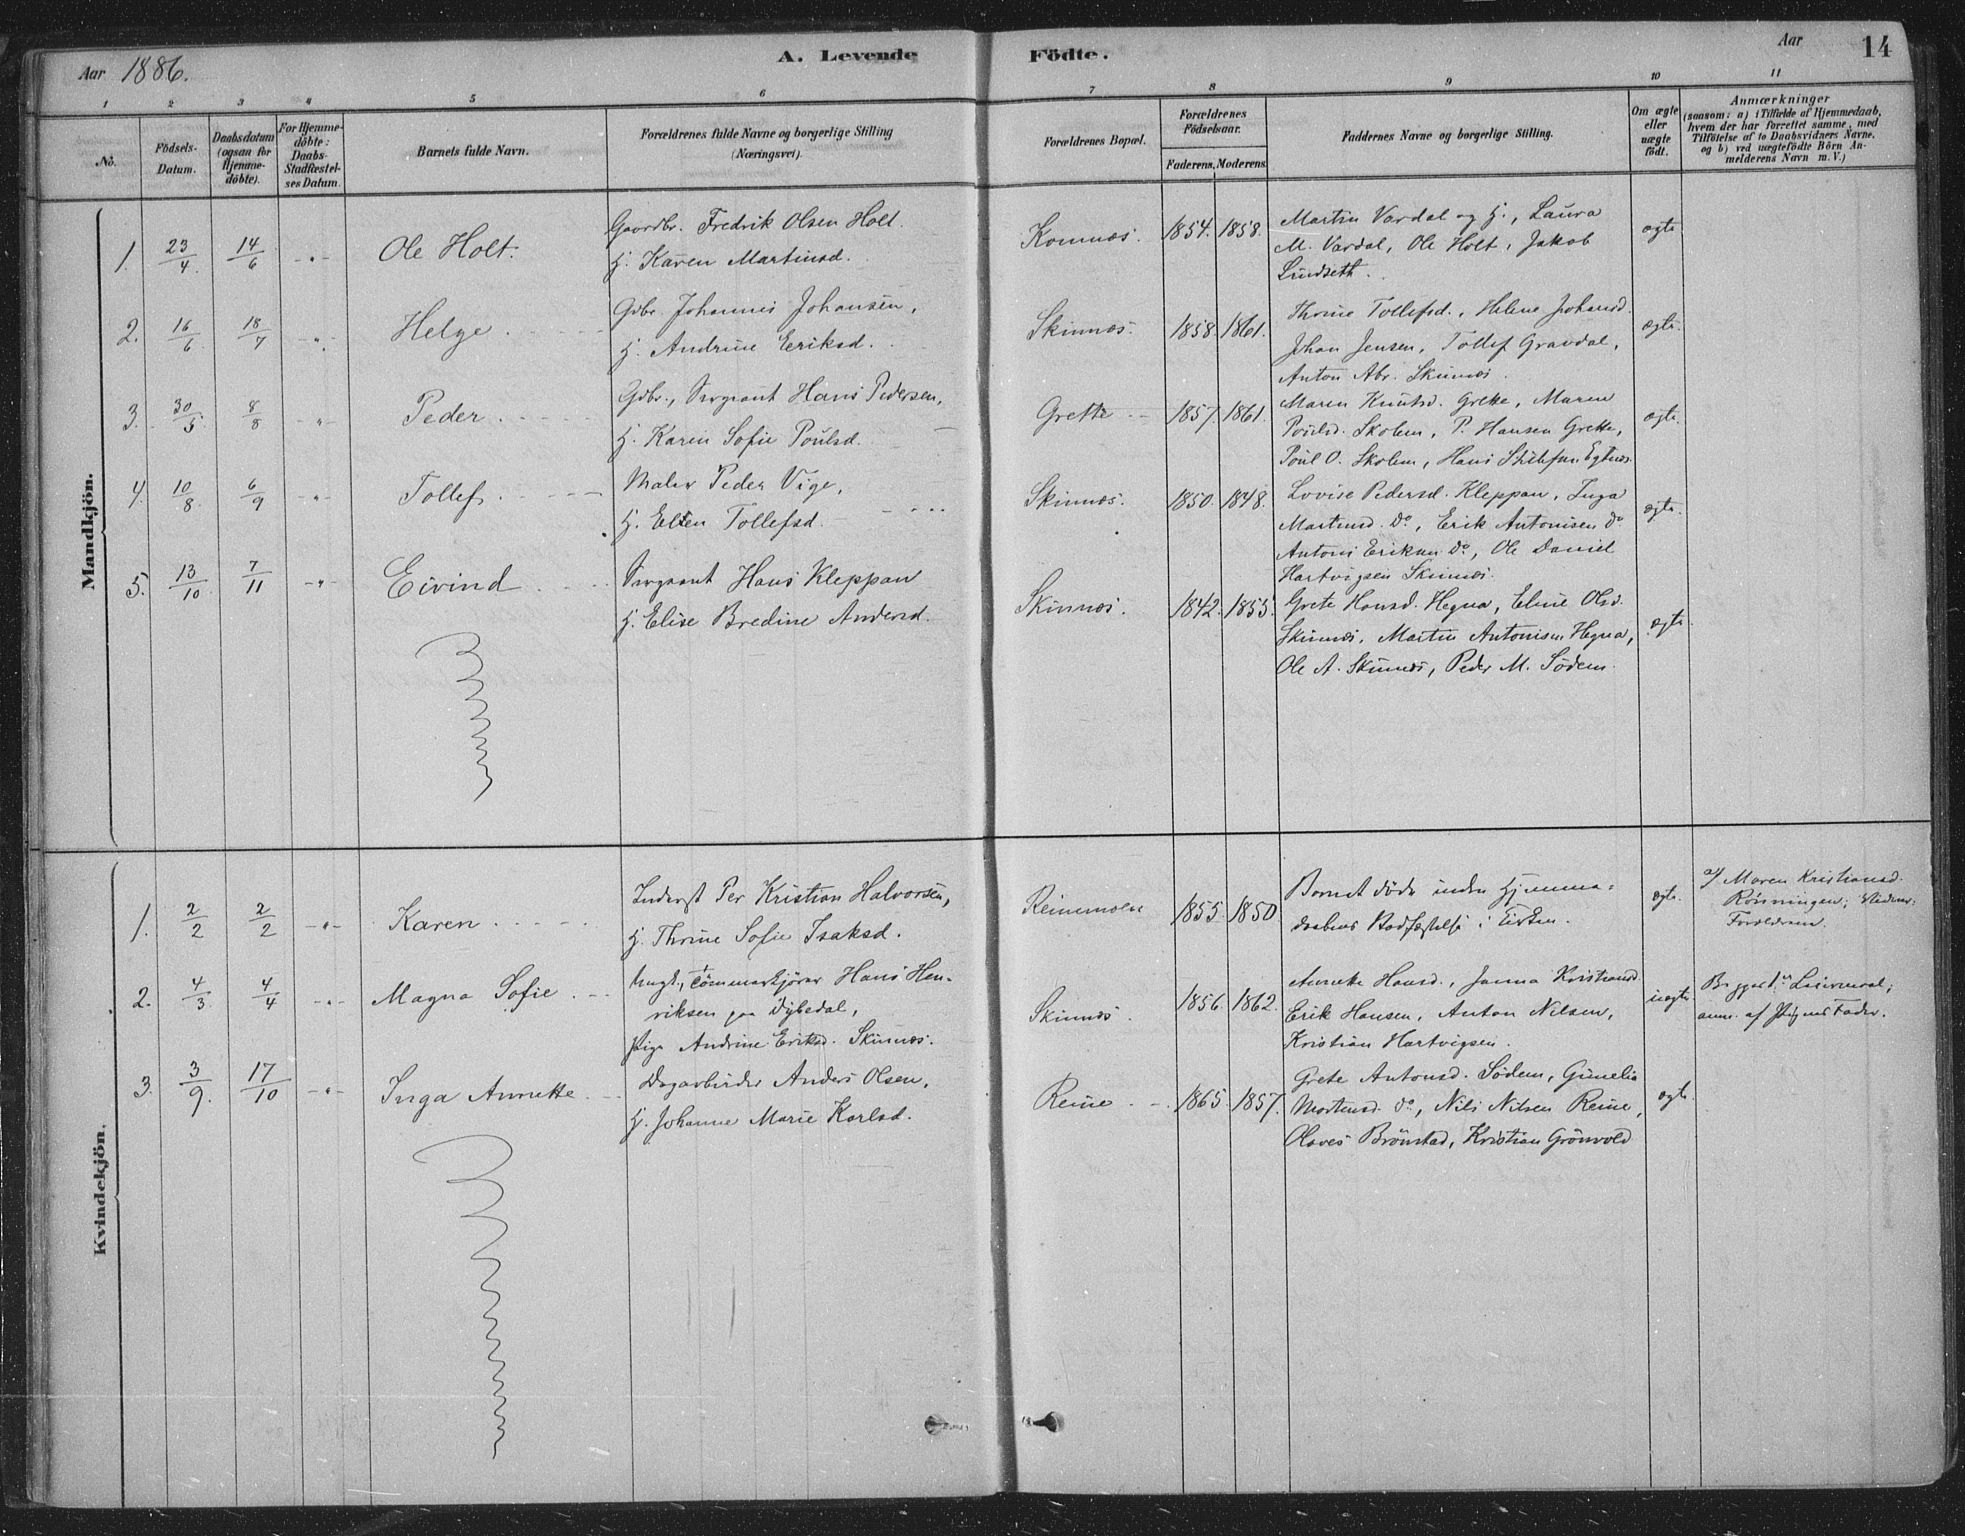 Aar 1886.
A. Levende Födte.
Aar
14
1 2 3 4 5 6 7 8 9 10 11
No.
Födsels-
Datum.
Daabsdatum
(ogsaa for
Hjemme-
döbte).
For Hjemme-
döbte:
Daabs-
Stadfæstel-
ses Datum.
Barnets fulde Navn.
Forældrenes fulde Navne og borgerlige Stilling
(Næringsvei).
Forældrenes Bopæl.
Forældrenes
Födselsaar.
Faderens. Moderens.
Faddernes Navne og borgerlige Stilling.
Om ægte
eller
uægte
födt.
Anmærkninger
(saasom: a) i Tilfælde af Hjemmedaab,
hvem der har forrettet samme, med
Tilföielse af to Daabsvidners Navne,
og b) ved uægtefödte Börn An-
melderens Navn m. V.)
Mandkjön.
1. 23/4. 14/6 -"- Ole Holt.
Gaardbr. Fredrik Olsen Holt.
H. Karen Martinsd.
Komnæs. 1854. 1858.
Martin Vardal og H., Laura
M. Vardal, Ole Holt, Jakob
Lindseth.
ægte
2. 16/6. 18/7 -"- Helge
Gdbr. Johannes Johansen,
H. Andrine Eriksd.
Skinnæs. 1858. 1861.
Thrine Tollefsd., Helene Johansd.
Johan Jensen, Tollef Gravdal,
Anton Abr. Skinnæs.
ægte.
3. 30/5. 8/8 -"- Peder
Gdbr., Sergeant Hans Pedersen,
H. Karen Sofie Poulsd.
Grette 1857. 1861.
Maren Knutsd. Grette, Maren
Poulsd. Skolem, P. Hansen Grette,
Poul O. Skolem, Hans
ægte.
4. 10/8. 6/9 -"- Tollef
Maler Peder Vige,
H. Elsen Tollefsd.
Skinnæs. 1850. 1848.
Lovise Pedersd. Kleppan, Inga
Martinsd. Do, Erik Antonisen Do
Antoni Eriksen Do, Ole Daniel
Hartvigsen Skinnæs.
ægte.
5. 13/10. 7/11 -"- Eivind
Sergeant Hans Kleppan
H. Elise Bredine Andersd.
Skinnæs. 1842. 1855.
Grete Hansd. Hegna, Eline Olsd.
Skinnæs, Martin Antonisen Hegna,
Ole A. Skinnæs, Peder M. Södem.
ægte.
Kvindekjön.
1. 2/2 2/2 -"- Karen
Inderst Per Kristian Halvorsen,
H. Thrine Sofie Isaksd.
Reinemoen 1855. 1850.
Barnet döde inden Hjemme-
daabens Stadfæstelse i Kirken.
ægte.
a/ Maren Kristiansd.
Rönningen; Vidner:
Forældrene.
2. 4/3. 4/4 -"- Magna Sofie
Ungk., Tömmerkjörer Hans Hen-
riksen paa Dybedal,
Pige Andrine Eriksd. Skinnæs.
Skinnæs. 1856. 1862.
Anneke Hansd., Janna Kristiansd.
Erik Hansen, Anton Nilsen,
Kristian Hartvigsen.
uægte
anm. af Pigens Fader.
3. 3/9. 17/10 -"- Inga Annette
Dagarbeider Anders Olsen,
H. Johanne Marie Karlsd.
Reine 1865. 1857.
Grete Antonsd. Södem, Gunelia
Mortensd. Do, Nils Nilsen Reine,
Olaves Brönstad, Kristian Grönvold
ægte.